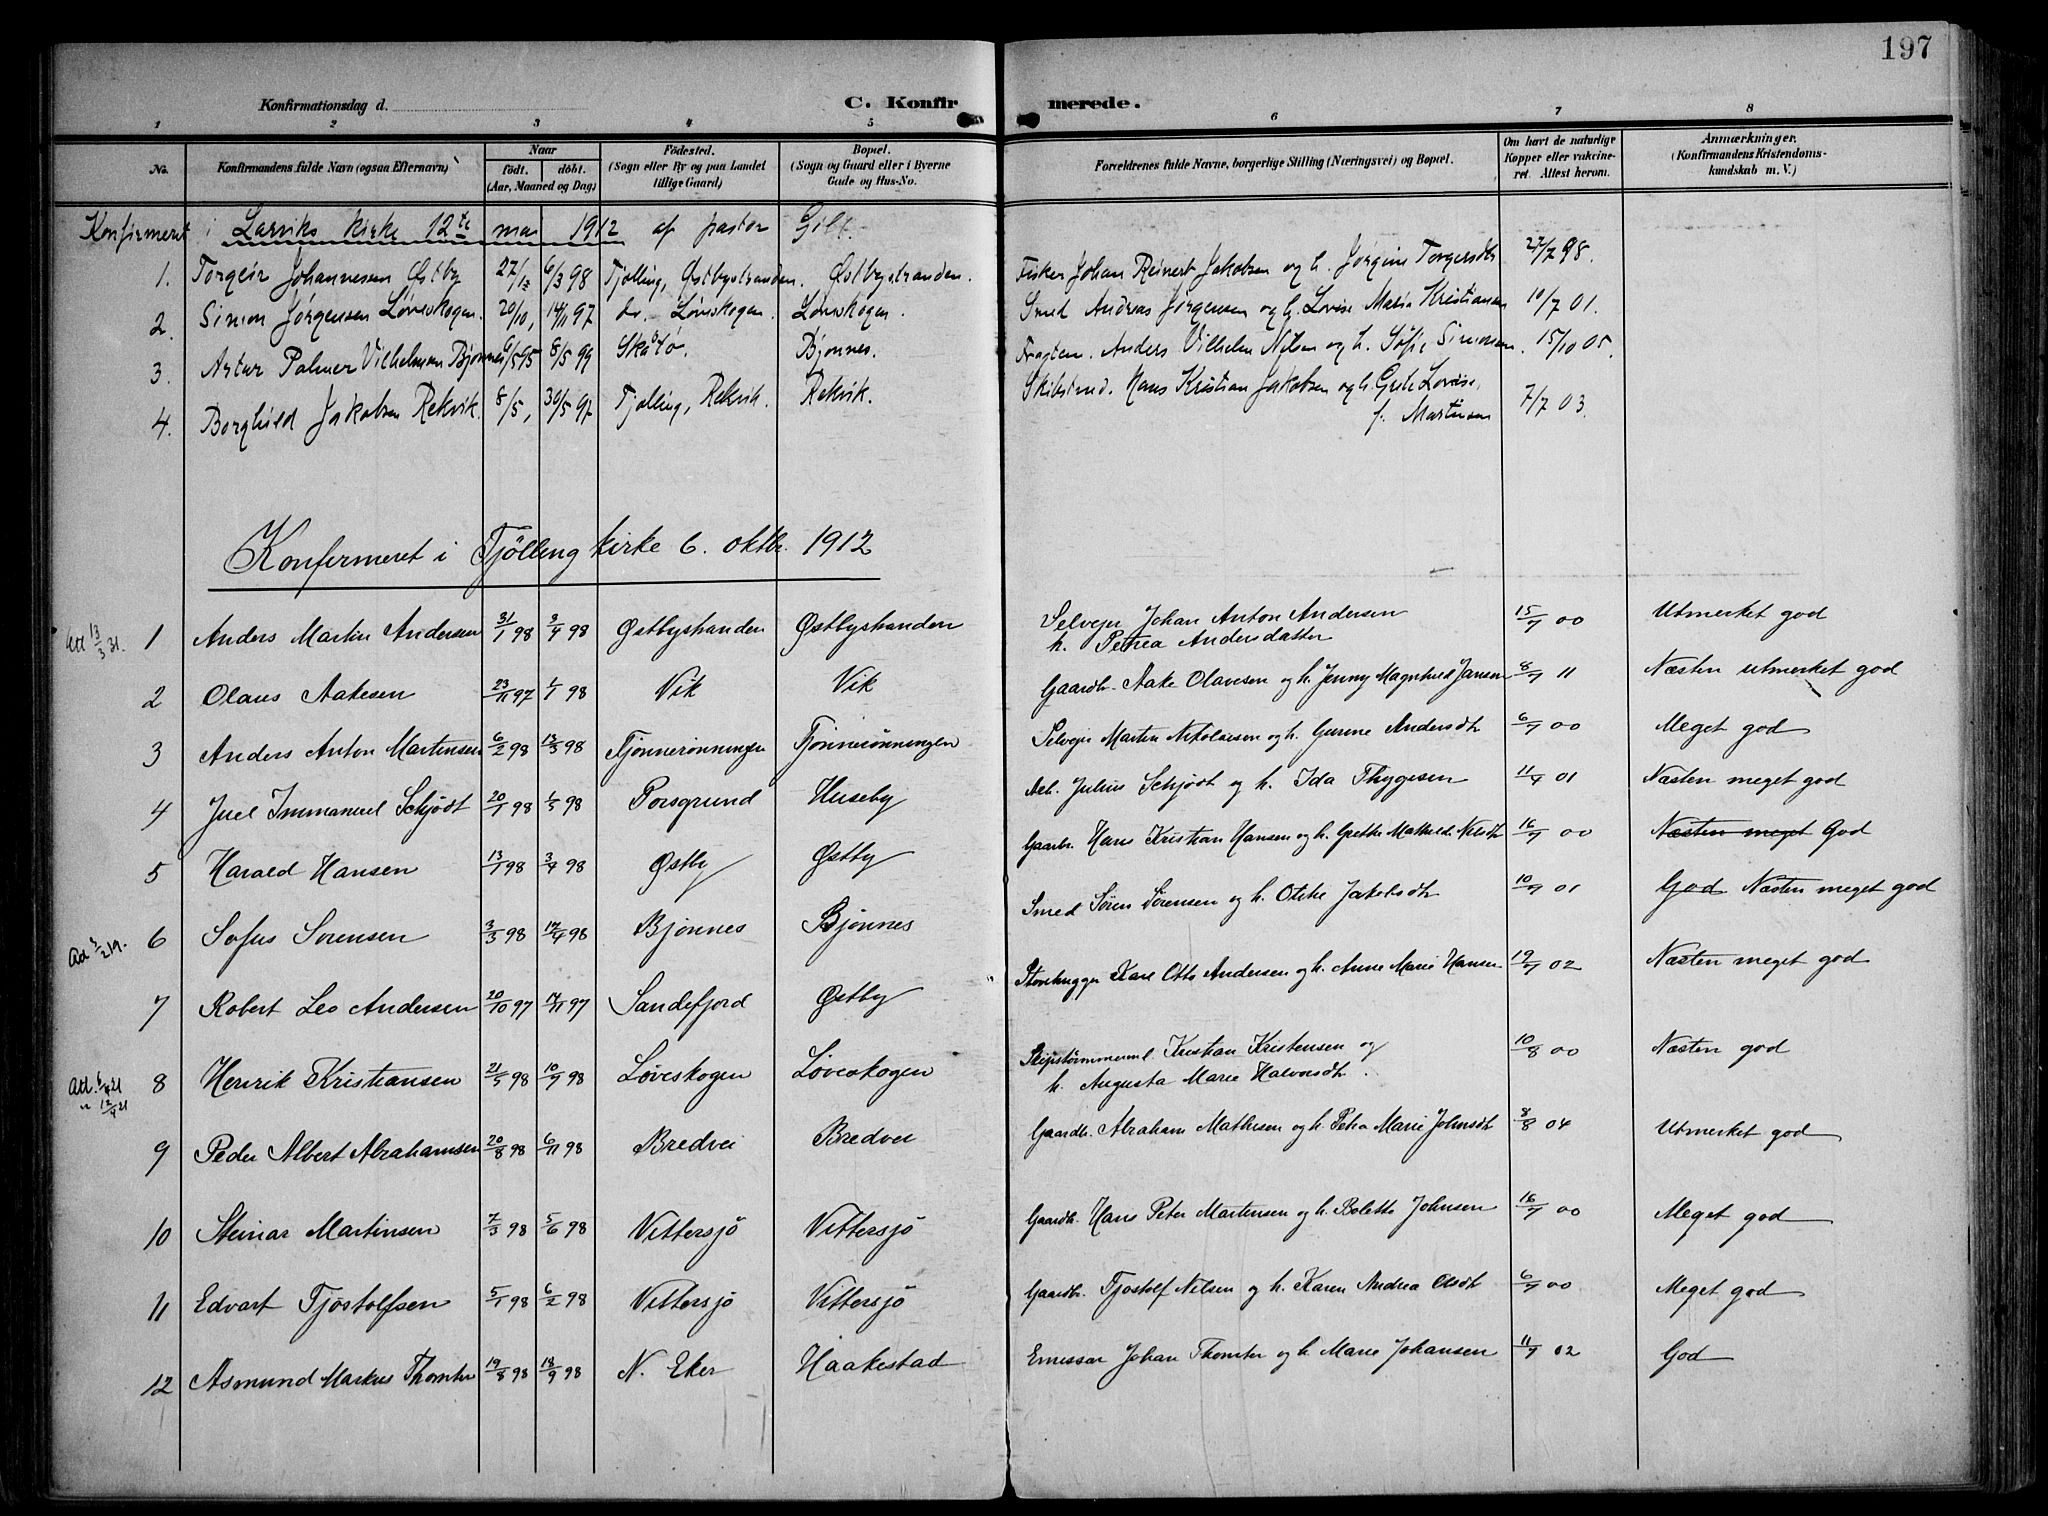 197
Konfirmationsdag d.
C. Konfir merede.
1 2 3 4 5 6 7 8
No. Konfirmandens fulde Navn (ogsaa Efternavn) Naar födt. döbt. (Aar, Maaned og Dag) Födested. (Sogn eller By og paa Landet tillige Gaard) Bopæl. (Sogn og Gaard eller i Byerne Gade og Hus-No. Forældrenes fulde Navne, borgerlige Stilling (Næringsvei) og Bopæl. Om havt de naturlige Kopper eller vakcineret. Attest herom. Anmærkninger. (Konfirmandens Kristendomskundskab m. V.)
Konfirmeret i Larviks kirke 12te mai 1912 af pastor
1. Torgeir Johannesen Østby 27/12 6/3 98 Tjølling, Østbystranden. Østbystranden. Fisker Johan Reinert Jakobsen og h. Jørgine Torgersdtr 27/7 98.
2. Simon Jørgensen Løveskogen. 20/10, 14/11 97 do. Løveskogen. Løveskogen. Smed Andreas Jørgensen og h. Lovise Marie Kristiansen 10/7 01.
3. Artur Palmer Vilhelmsen Bjønnes 8/5 99 Skåtø. Bjønnes. Anders Vilhelm Nilsen og h. Sofie Simonsen. 15/10 05.
4. Borghild Jakobsen Rekvik. 8/5, 30/5 97 Tjølling, Rekvik. Rekvik. Skibstmd. Hans Kristian Jakobsen og h. Grete Lovise,
f. Martinsen 7/7 03.
Konfirmeret i Tjölling kirke 6. oktbr. 1912
Att 13/3 31. 1 Anders Martin Andersen 31/1 98 3/4 98 Østbystranden Østbystranden Selveier Johan Anton Andersen
h. Petrea Andersdatter 15/9 00 Utmerket god
2 Olaus Aakesen 23/11 97 1/1 98 Vik Vik Gaardbr. Aake Olavesen og h. Jenny Magnhild Jansen 8/9 11 Næsten utmerket god
3 Anders Anton Martinsen 6/2 98 13/3 98 Tjönnerönningen Tjönnerönningen Selveier Martin Nikolaisen og h. Gurine Andersdtr 6/9 00 Meget god
4 Juel Immanuel Schjödt 20/1 98 1/5 98 Porsgrund Huseby Arb. Julius Schjödt og h. Ida Thygesen 11/9 01 Næsten meget god
5 Harald Hansen 13/1 98 3/4 98 Østby Østby Gaardbr. Hans Kristian Hansen og h. Grethe Mathilde Nilsdtr 16/9 00 Næsten meget God
6 Sofus Sörensen 3/3 98 17/4 98 Bjönnes Bjönnes Smed Sören Sörensen og h. Otilie Jakobsdtr 10/9 01 God Næsten meget god
7 Robert Leo Andersen 20/10 97 14/11 97 Sandefjord Østby Stenhugger Karl Otto Andersen og h. Anne Marie Hansen 19/9 02 Næsten meget god
8 Henrik Kristiansen 21/5 98 10/9 98 Löveskogen Löveskogen Skipstömmerml Kristian Kristensen og
h. Augusta Marie Halvorsdtr. 10/8 00 Næsten god
9 Peder Albert Abrahamsen 20/8 98 6/11 98 Bredvei Bredvei Gaardbr. Abraham Mathisen og h. Petra Marie Johnsdtr 8/8 04 Utmerket god
10 Steinar Martinsen 7/3 98 5/6 98 Vittersjö Vittersjö Gaardbr. Hans Peter Martinsen og h. Bolette Johnsen 16/9 00 Meget god
11 Edvart Tjöstolfsen 5/1 98 6/2 98 Vittersjö Vittersjö Gaardbr. Tjöstolf Nilsen og h. Karen Andrea Olsdtr 6/9 00 Meget god
12 Asmund Markus Thomter 19/8 98 18/9 98 N. Eker Haakestad Emissær Johan Thomter og h. Marie Johansen 11/9 02 God